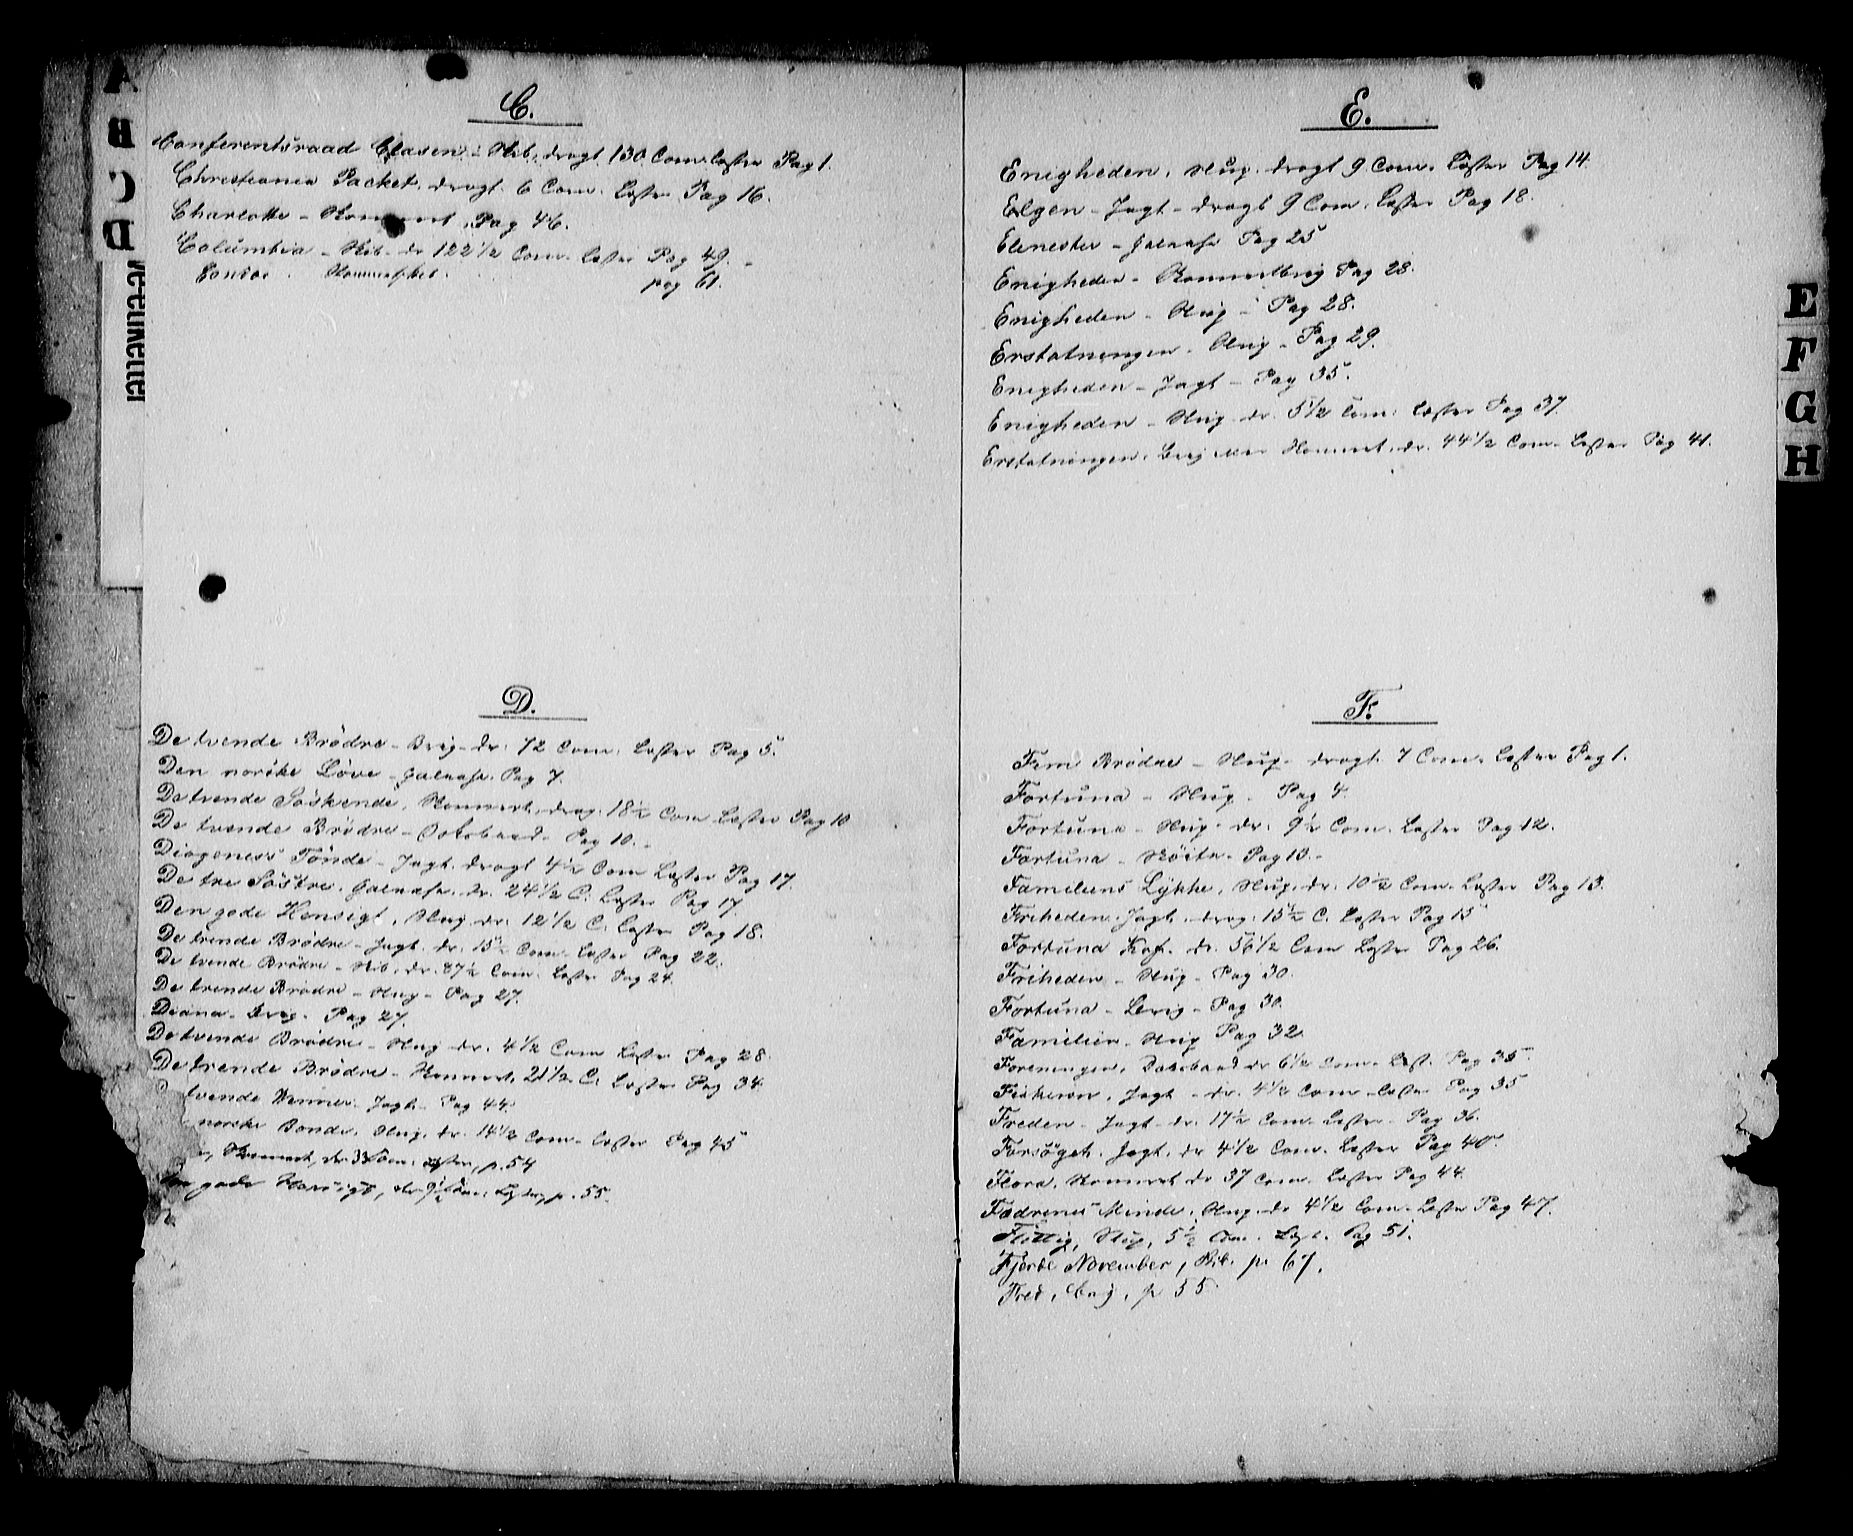 C.
Conferentsraad Clasen, Skib, drægt. 130 Com. Læster Pag 1.
Christiania Packet, drægt. 6 Com. Læster Pag 16.
Charlotte - Konnvert, Pag 46.
Columbia - Skib - dr 122 1/2 Com. Læster Pag 49. -
pag 61.
D.
De tvende Brödre - Brig - dr. 72 Com. Læster Pag 5.
Den norske Löve - Galease. Pag 7.
De tvende Söskende, Konnvert, dræg. 18 1/2 Com Læster Pag 10
De tvende Brödre - Pag 10. -
Diogeness Tönde - Jagt. drægt 4 1/2 Com Læster Pag 17.
De tre Söstre. Galease. dr. 24 1/2 C. Læster Pag 17.
Den gode Hensigt, Slup dr. 12 1/2 C. Læster Pag 18.
De trende Brödre - Jagt. dr. 15 1/2 Com. Læster Pag 22.
De tvende Brödre - Skib. dr. 87 1/2 Com. Læster Pag 24.
De trende Brödre - Slup - Pag 27.
Diana. Brig. Pag 27.
De tvende Brödre - Slup dr. 4 1/2 Com Læster Pag 28.
De trende Brödre - Konnvert. 21 1/2 C. Læster Pag 34.
tvende Venner - Jagt - Pag 44.
norske Bonde. Slup. dr. 14 1/2 Com. Læster Pag 45
Konnvert, dr. Com. Læster, p. 54
gode Hensigt, dr. 9 1/2 Com. Læster, p. 55.
E.
Enigheden. Slup. drægt 9 Com. Læster Pag 14.
Elgen - Jagt - drægt 9 Com. Læster Pag 18.
Elenester - Galease Pag 25
Enigheden - Konnvertbrig Pag 28.
Enigheden - Slup - Pag 28.
Erstatningen. Slup - Pag 29.
Enigheden - Jagt - Pag 35.
Enigheden - Slup. dr. 5 1/2 Com. Læster Pag 37
Erstatningen. Konnvert. dr. 44 1/2 Com. Læster Pag 41.
F.
Fem Brödre - Slup - drægt. 7 Com. Læster Pag 1.
Fortuna - Slup - Pag 4.
Fortuna - Slup. dr. 9 1/2 Com. Læster Pag 12.
Fortuna - Sköite - Pag 13. -
Familiens Lykke, Slup. dr. 10 1/2 Com. Læster Pag 13.
Friheden. Jagt. dræg. 15 1/2 C. Læster Pag 15
Fortuna Kof. dr. 56 1/2 Com Læster Pag 26.
Friheden - Slup - Pag 30.
Fortuna - Brig - Pag 30.
Familien - Slup Pag 32
Foreningen, Dæksbaad dr 6 1/2 Com. Læst. Pag 35
Fiskeren, Jagt - dr. 4 1/2 Com. Læster Pag 35
Freden - Jagt - dr. 17 1/2 Com. Læster - Pag 36.
Forsöget. Jagt. dr 4 1/2 Com. Læster Pag 40.
Flora. Konnvert dr 37 Com. Læster Pag 44.
Fædrenes Minde. Slup. dr 4 1/2 Com. Læster Pag 47.
Flittig, Slup, 5 1/2 Com. Læst. Pag 51.
Fjerde November, Skib. p. 67.
Fred, Brig, p 55.
A
B
C
D
E
F
G
H